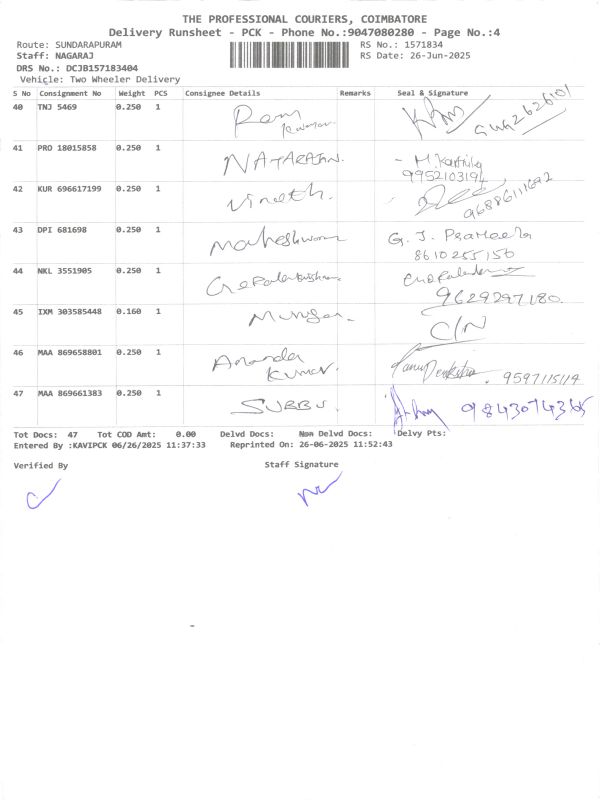 THE PROFESSIONAL COURIERS, COIMBATORE
Delivery Runsheet - PCK - Phone No.:9047080280 - Page No.:4
Route: SUNDARAPURAM RS No.: 1571834
Staff: NAGARAJ RS Date: 26-Jun-2025
DRS No.: DCJB157183404
Vehicle: Two Wheeler Delivery
S No Consignment No Weight PCS Consignee Details Remarks Seal & Signature
40 TNJ 5469 0.250 1 Ram
Kumar
41 PRO 18015858 0.250 1 NATARAJAN. - M. Karthika
9952103194
42 KUR 696617199 0.250 1 Vineeth.
9688611692
43 DPI 681698 0.250 1 Maheshwari G. J. Prameela
8610255150
44 NKL 3551905 0.250 1 Gopalakrishnan
9629297180.
45 IXM 303585448 0.160 1 Murugan. C/N
46 MAA 869658801 0.250 1 Ananda
Kumar. 9597115114
47 MAA 869661383 0.250 1 SUBBU. 9843074365
Tot Docs: 47 Tot COD Amt: 0.00 Delvd Docs: Non Delvd Docs: Delvy Pts:
Entered By :KAVIPCK 06/26/2025 11:37:33 Reprinted On: 26-06-2025 11:52:43
Verified By Staff Signature